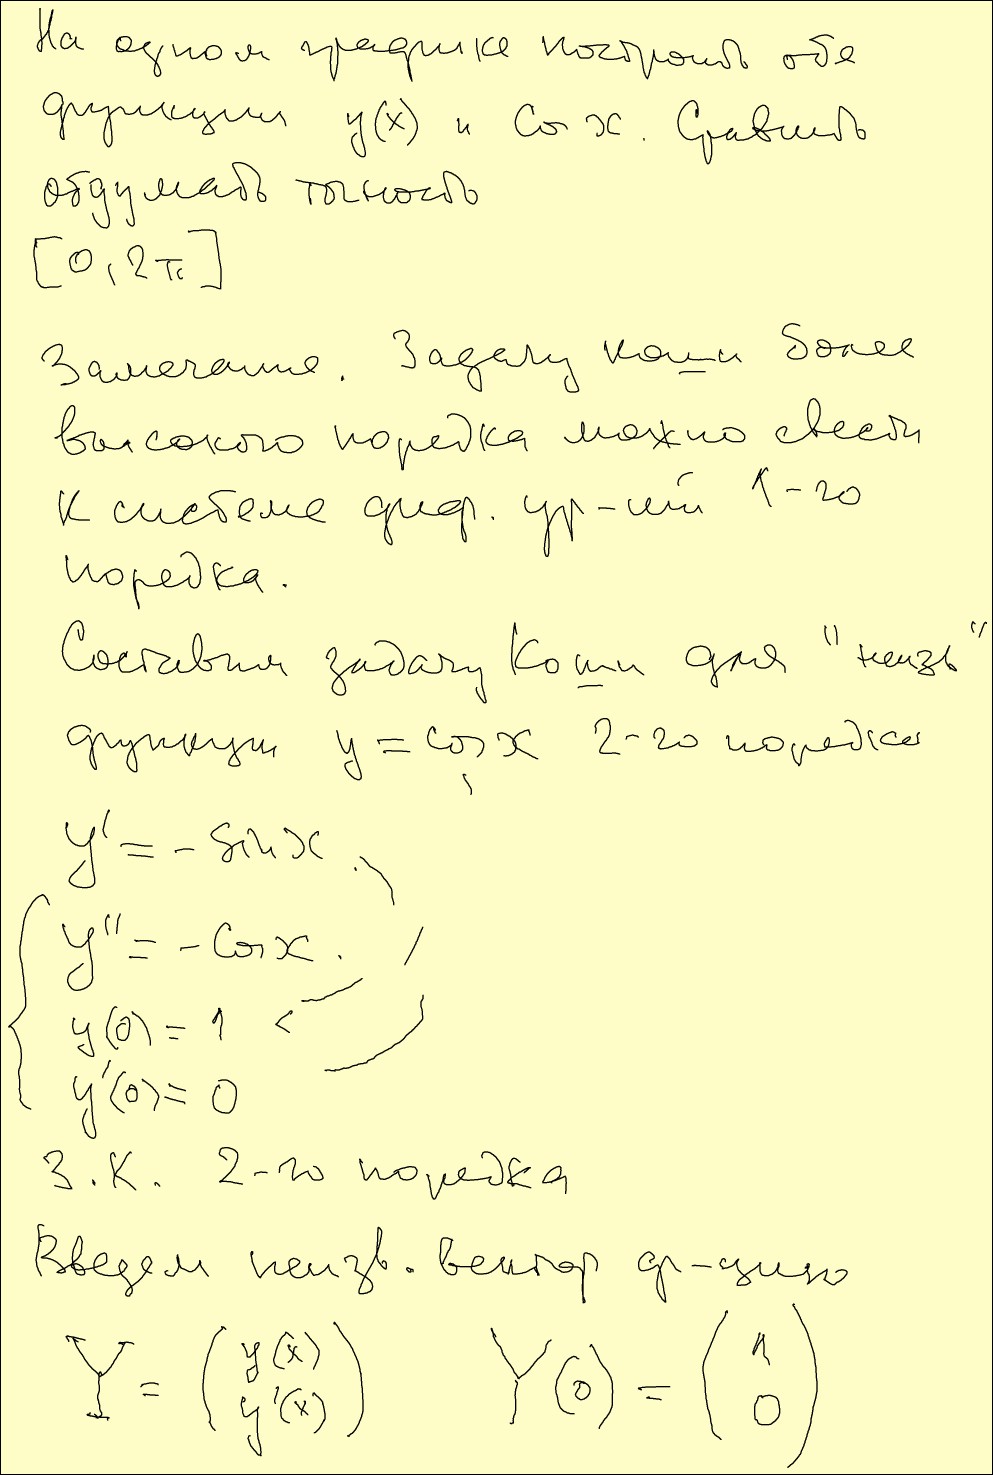 На одном графике построить обе
функции y(x) и Cos x. Сравнить
обдумать точность
[0, 2π]
Замечание. Задачу коши более
высокого порядка можно свести
к системе диф. ур-ий 1-го
порядка.
Составим задачу Коши для "неизв"
функции y = cos x 2-го порядка
y' = - Sin x
y'' = - Cos x.
y(0) = 1 <
y'(0) = 0
З.К. 2-го порядка
Введем неизв. вектор ф-цию
Y = (y(x) y'(x)) Y(0) = (1 0)